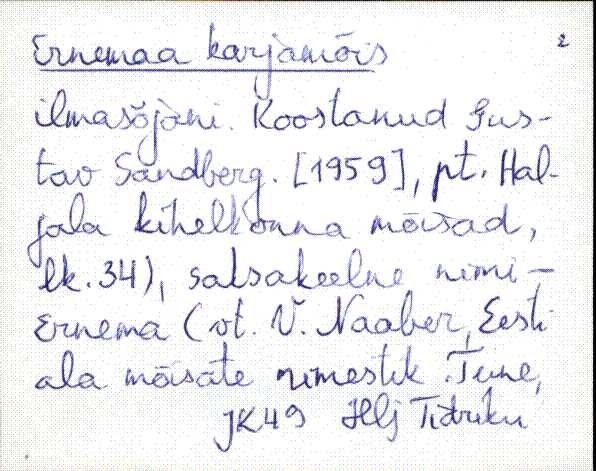 2
Ernemaa karjamõis
ilmasõjani. Koostanud Gus-
tav Sandberg. [1959], pt. Hal-
jala kihelkonna mõisad,
lk. 34), saksakeelne nimi –
Ernema (vt. V. Naaber, Eesti
ala mõisate nimestik.
JK49 Hlj Tidriku